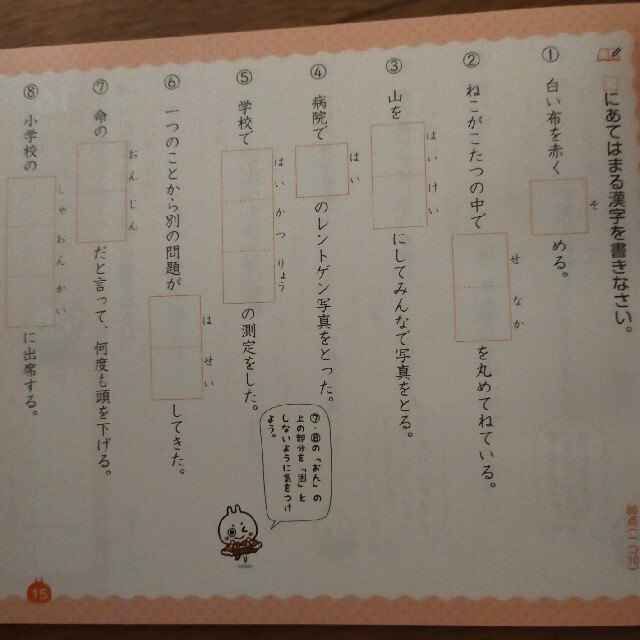 □にあてはまる漢字を書きなさい。
① 白い布を赤く□める。
そ
② ねこがこたつの中で□□を丸めてねている。
せなか
③ 山を□□にしてみんなで写真をとる。
はいけい
④ 病院で□のレントゲン写真をとった。
はい
⑤ 学校で□□□の測定をした。
はいかつりょう
⑥ 一つのことから別の問題が□□してきた。
はせい
⑦ 命の□□だと言って、何度も頭を下げる。
おんじん
⑧ 小学校の□□□に出席する。
しゃおんかい
⑦・⑧の「おん」の
上の部分を「困」と
しないように気をつけ
よう。
15